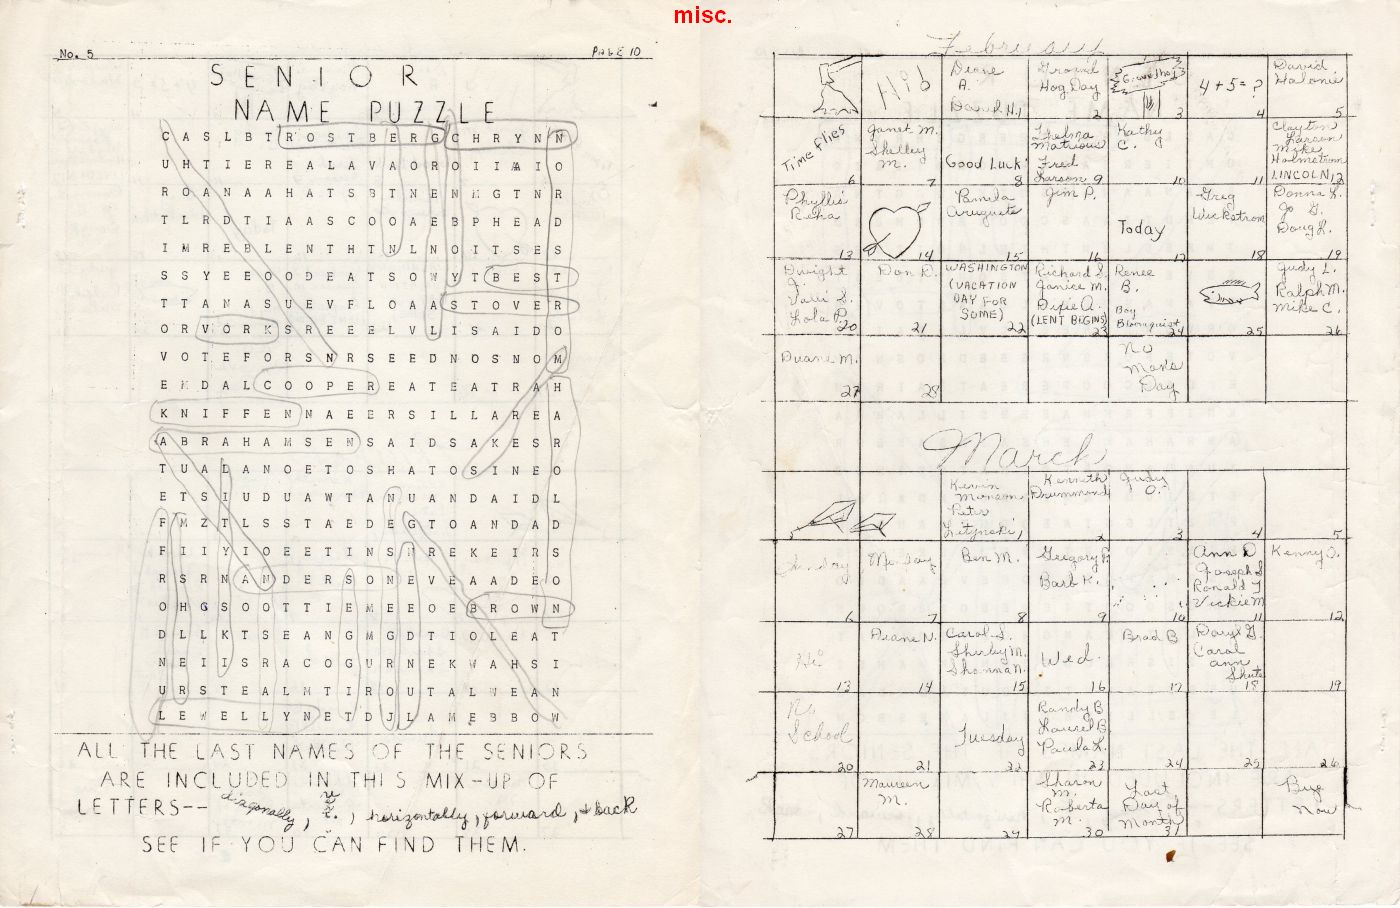 misc.
No. 5 PAGE 10
SENIOR
NAME PUZZLE
C A S L B T R O S T B E R G C H R Y N N
U H T I E R E A L A V A O R O I I A I O
R O A N A A H A T S B T N E N M G T N R
T L R D T I A A S C O O A E B P H E A D
I M R E B L E N T H T N L N O I T S E S
S S Y E E O O D E A T S O W Y T B E S T
T T A N A S U E V F L O A A S T O V E R
O R V O R K S R E E E L V L I S A I D O
V O T E F O R S N R S E E D N O S N O M
E M D A L C O O P E R E A T E A T R A H
K N I F F E N N A E E R S I L L A R E A
A B R A H A M S E N S A I D S A K E S R
T U A L A N O E T O S H A T O S I N E O
E T S I U D U A W T A N U A N D A I D L
F M Z T L S S T A E D E G T O A N D A D
F I I Y I O E E T I N S N R E K E I R S
R S R N A N D E R S O N E V E A A D E O
O H G S O O T T I E M E E O E B R O W N
D L L K T S E A N G M G D T I O L E A T
N E I I S R A C O G U R N E K W A H S I
U R S T E A L M T I R O U T A L W E A N
L E W E L L Y N E T D J L A M E B B O W
ALL THE LAST NAMES OF THE SENIORS
ARE INCLUDED IN THIS MIX-UP OF
LETTERS-- diagonally, horizontally, forward, & back
SEE IF YOU CAN FIND THEM.
February
Hi 6
Diane A. David H. 1
Ground Hog Day 2
Groundhog 3
4+5=? 4
David Halonie 5
Time flies 6
Janet M. Shelley M. 7
Good Luck 8
Thelma Matrious Fred Larson 9
Kathy C. 10
11
Clayton Larson Mike Holmstrom LINCOLN 12
Phyllis Reha 13
14
Pamela Aruguete 15
Jim P. 16
Today 17
Greg Wickstrom 18
Donna L. Jo G. Doug L. 19
Dwight J. Patti S. Lola P. 20
Don D. 21
WASHINGTON (VACATION DAY FOR SOME) 22
Richard S. Janice M. Dixie A. (LENT BEGINS) 23
Renee B. Boy Bloomquist 24
25
Judy L. Ralph M. Mike C. 26
Duane M. 27
28
No Man's Day
March
Kevin Monson Peter 1
Kenneth Drummond 2
Judy O. 3
4
5
Sunday 6
Monday 7
Ben M. 8
Gregory P. Barb K. 9
10
Ann D Joseph S Ronald T Vickie M 11
Kenny J. 12
Hi 13
Diane N. 14
Carol S. Shirley M. Shanna N. 15
Wed. 16
Brad B 17
Daryl G. Carol ann Shute 18
19
No School 20
21
Tuesday 22
Randy B Laurel B. Paula L. 23
24
25
26
27
Maureen M. 28
29
Sharon M. Roberta M. 30
Last Day of Month 31
Buy Now